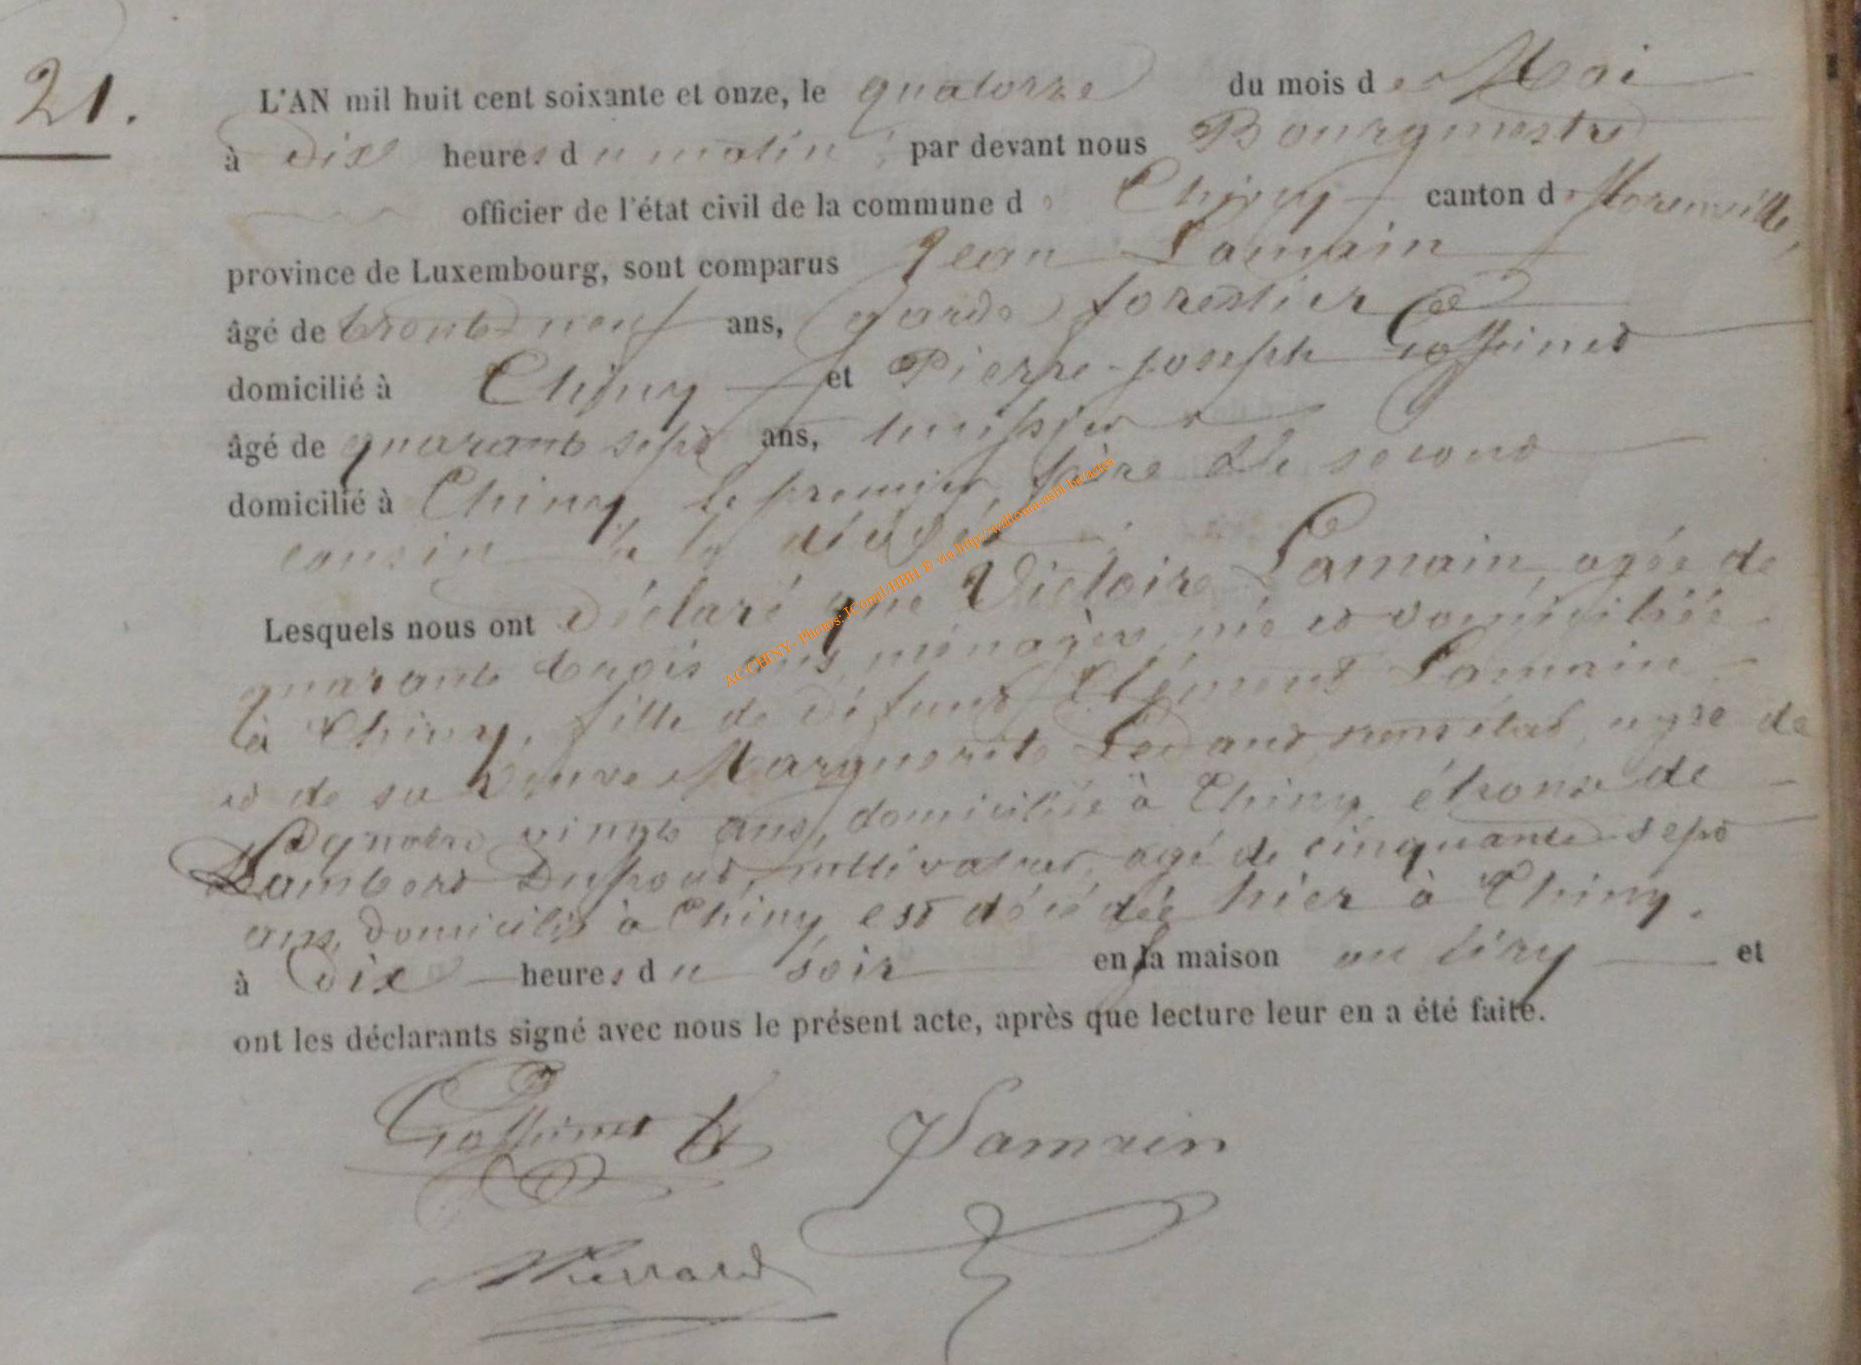 21.
L'AN mil huit cent soixante et onze, le quatorze du mois de Mai
à dix heures du matin par devant nous Bourgmestre
officier de l'état civil de la commune d Chiny canton d Florenville,
province de Luxembourg, sont comparus Jean Lamain
âgé de trente neuf ans, garde forestier
domicilié à Chiny et Pierre-Joseph Goffinet
âgé de quarante sept ans, huissier
domicilié à Chiny, le premier frère Le second
cousin de la
Lesquels nous ont déclaré que Victoire Lamain, agée de
quarante trois ans, ménagère, née et domiciliée
à Chiny, fille de défunt Clément Lamain
et de sa veuve Marguerite sans état, agée de
quatre vingts ans, domiciliée à Chiny, épouse de
Lambert Dupont, cultivateur, agé de cinquante sept
ans, domicilié à Chiny est décédée hier à Chiny.
à dix heures du soir en la maison et
ont les déclarants signé avec nous le présent acte, après que lecture leur en a été faite.
Goffinet Lamain
AC CHINY - Photos: JComil-HBH © via http://